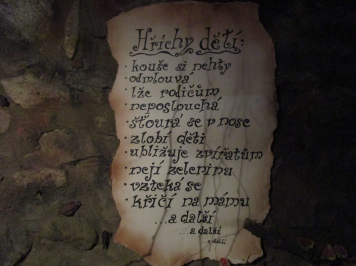 Hříchy dětí:
• kouše si nehty
odmlouvá
• lže rodičům
• neposlouchá
• šťourá se v nose
• zlobí děti
• ubližuje zvířatům
• nejí zeleninu
• vzteká se
• křičí na mámu
...a další
...a další
a další